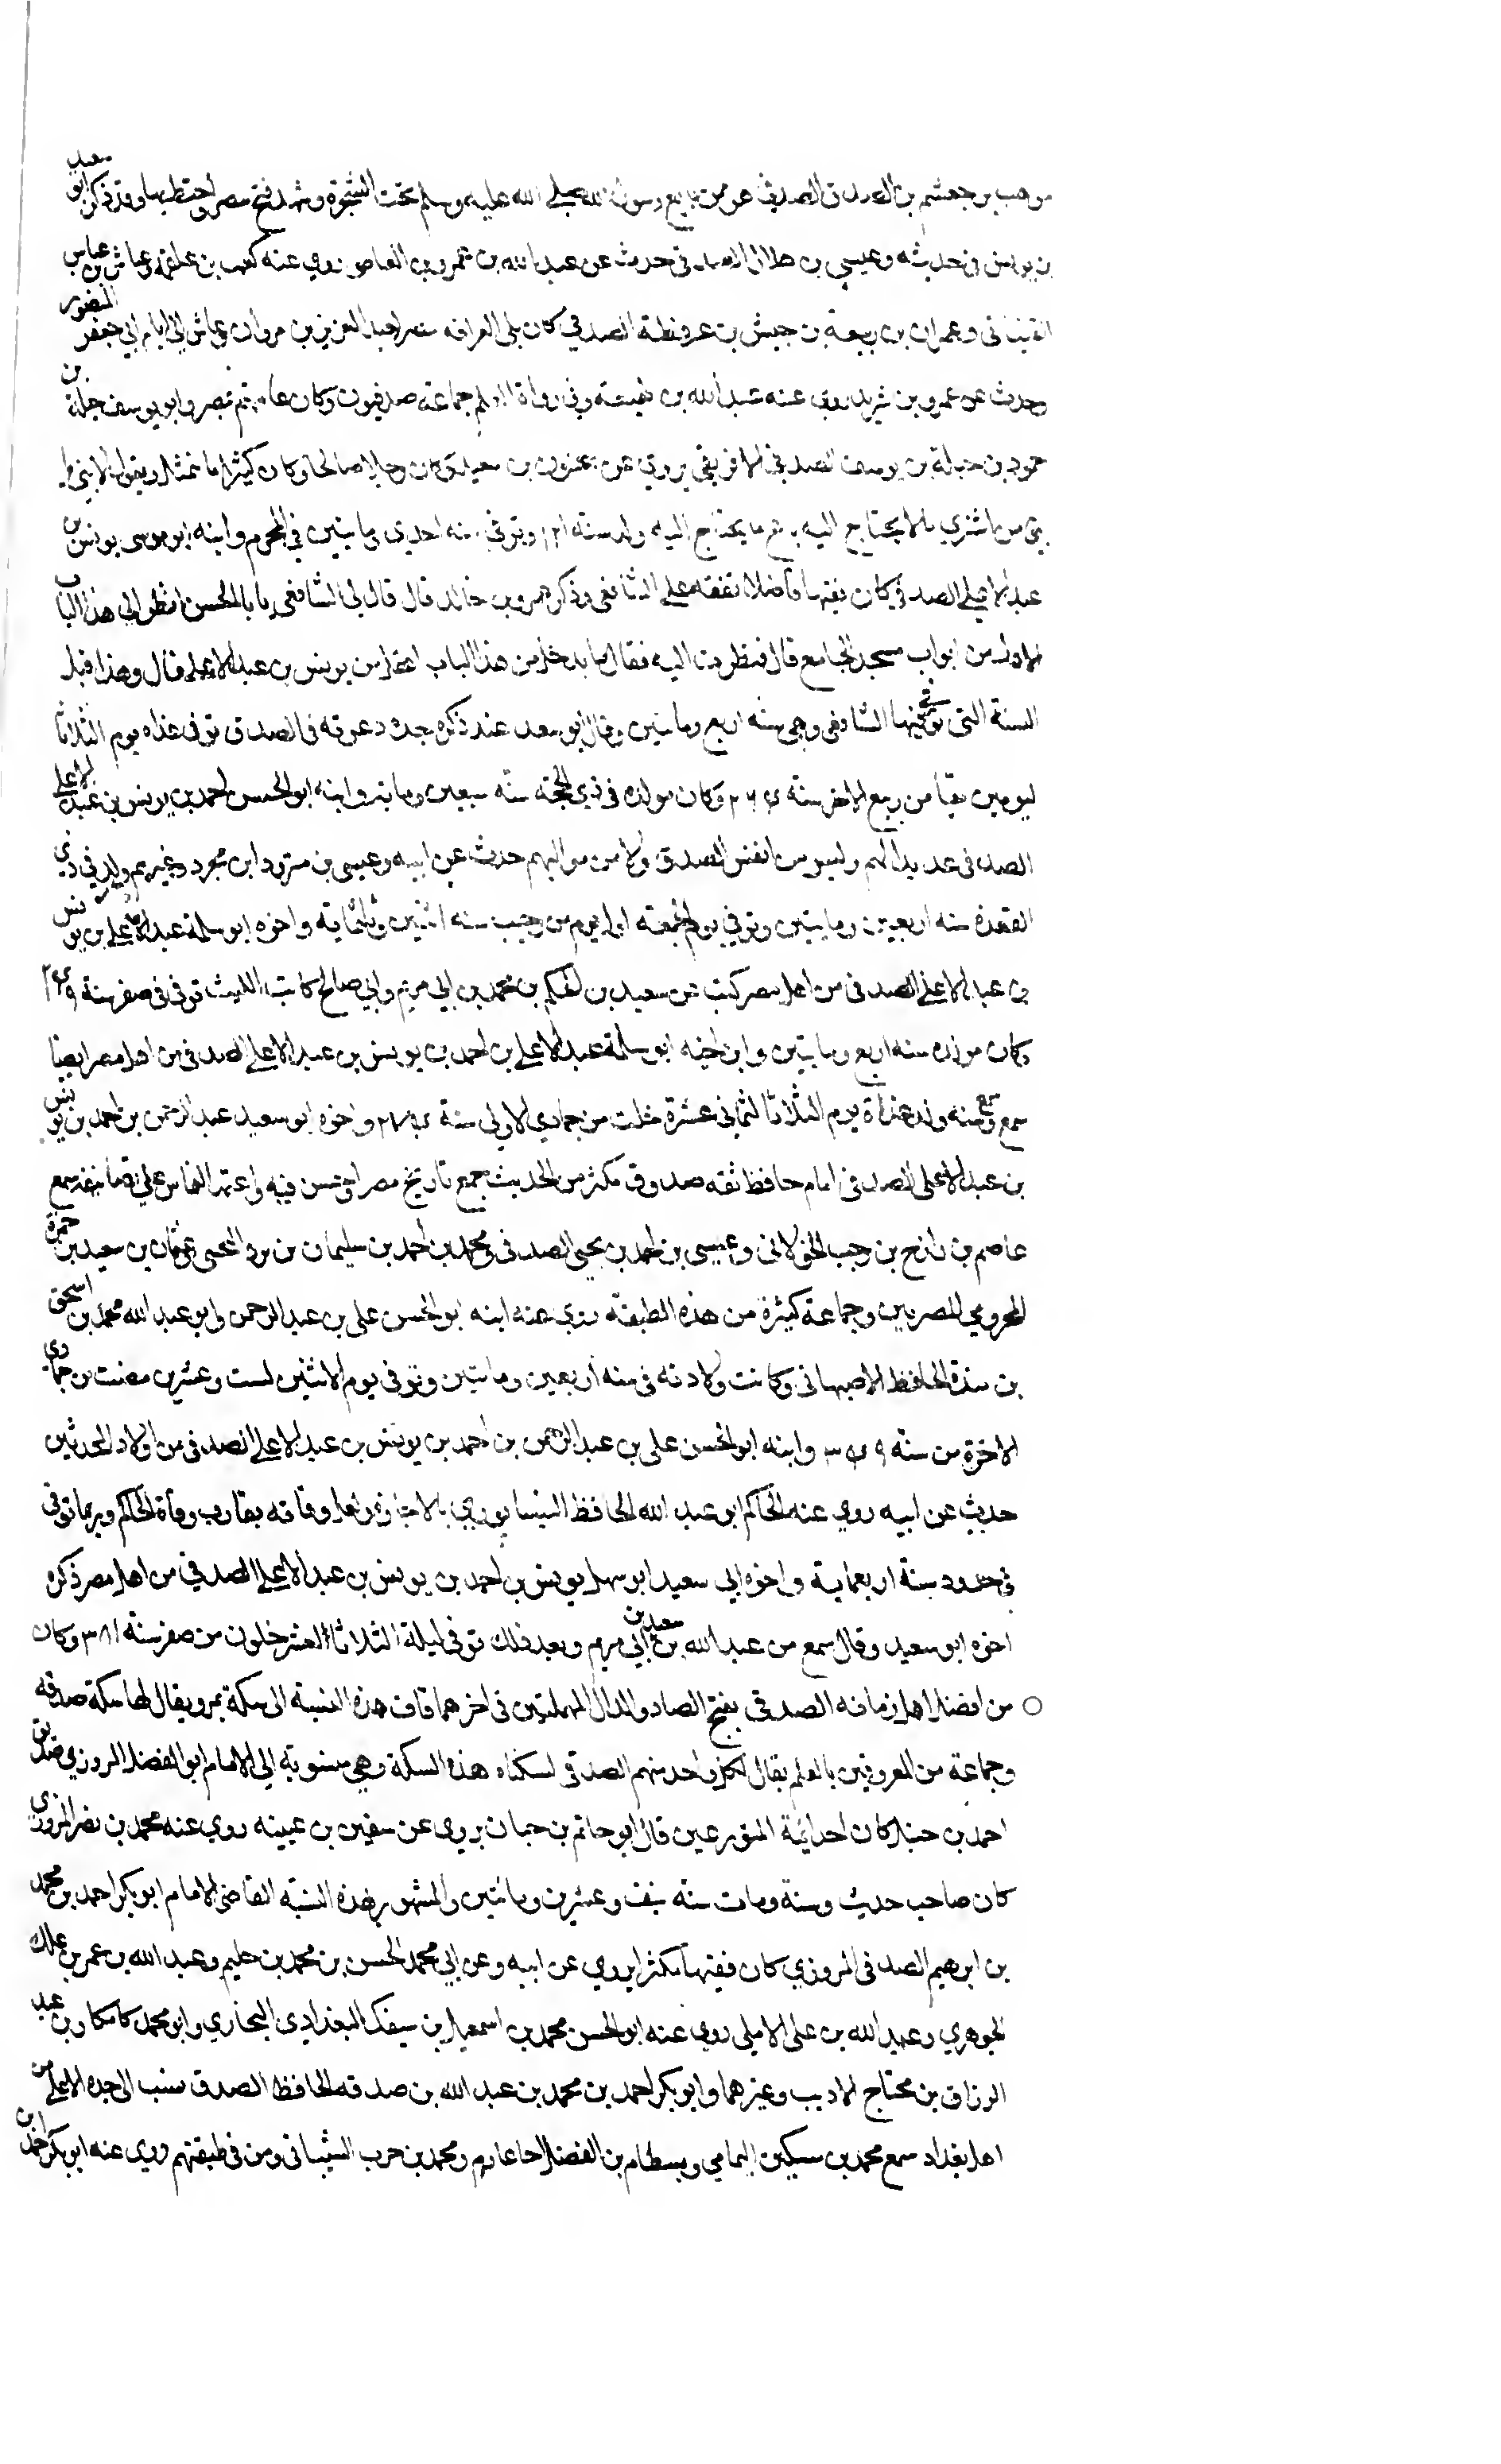 موهب بن جعشم بن الصدف الصدفي هو ممن بايع رسول الله صلى الله عليه وسلم تحت الشجرة وشهد فتح مصر واختط بها وقد ذكر ابو سعيد
بن يونس في حديثه وعيسى بن هلال الصدفي حدث عن عبد الله بن عمرو بن العاص روي عنه كعب بن علقمة وعياش بن عباس
القتباني وعمران بن ربيعة بن حبيش بن عرفطة الصدفي كان يلي العرافه بمصر لعبد العزيز بن مروان وعاش الى ايام ابي جعفر المنصور
وحدث عن عمرو بن شريد روى عنه عبد الله بن لهيعة وفي رواة العلم جماعة صدفيون وكان عامتهم بمصر وابو يوسف جبلة بن
حمود بن جبلة بن يوسف الصدفي الافريقي يروي عن سحنون بن سعيد وكان رجلا صالحا وكان كثيرا ما يتمثل ويقول لابني
بني من اشترى ما لا يحتاج اليه باع ما يحتاج اليه ولد سنه وتوفي سنه احدى ومايتين في المحرم وابنه ابو موسى يونس بن
عبد الاعلى الصدفي كان فقيها فاضلا تفقه على الشافعي وذكر عمرو بن خالد قال قال لي الشافعي يا با الحسن انظر الى هذا الباب
الاول من ابواب مسجد الجامع قال فنظرت اليه فقال ما يدخل من هذا الباب اعقل من يونس بن عبد الاعلى قال وهذا قبل
السنة التي توفي فيها الشافعي وهي سنه اربع ومايتين وقال ابو سعد عند ذكره جده دعوته في الصدف توفي غداه يوم الثلاثا
ليومين بقيا من ربيع الاخر سنة ٢٦٤ وكان مولده في ذي الحجة سنه سبعين ومايه وابنه ابو الحسن احمد بن يونس بن عبد الاعلى
الصدفي عديد الهم وليس من انفس الصدف ولا من مواليهم حدث عن ابيه وعيسى بن مثرود ابن مجرد وغيرهم ولد في ذي
القعدة سنه اربعين ومايتين وتوفي يوم الجمعة اول يوم من رجب سنه اثنين وثلثماية واخوه ابو سلمة عبد الاعلى بن يونس
بن عبد الاعلى الصدفي من اهل مصر كتب عن سعيد بن الحكم بن محمد بن ابي مريم وابي صالح كاتب الليث توفي في صفر سنة ٢٤٩
وكان مولده سنه اربع ومايتين وابن اخيه ابو سلمة عبد الاعلى بن احمد بن يونس بن عبد الاعلى الصدفي من اهل مصر ايضا
سمع وسمع منه ولد غداة يوم الثلاثا لثماني عشرة خلت من جمادي الاولى سنة ٢٧٤ واخوه ابو سعيد عبد الرحمن بن احمد بن يونس
بن عبد الاعلى الصدفي امام حافظ ثقه صدوق مكثر من الحديث جمع تاريخ مصر احسن فيه واعتمد الناس على تصانيفه سمع
عاصم بن رازح بن رجب الخولاني وعيسى بن احمد بن يحيى الصدفي ومحمد بن احمد بن سليمان بن برد التجيبي وعثمان بن سعيد بن حمزة
المحرومي المصريين وجماعة كثيرة من هذه الطبقه روي عنه ابنه ابو الحسن علي بن عبد الرحمن وابو عبد الله محمد بن اسحق
بن مندة الحافظ الاصبهاني وكانت ولادته في سنه اربعين ومايتين وتوفي يوم الاثنين لست وعشرين مضت من جمادي
الاخرة من سنه ٣٤٩ وابنه ابو الحسن علي بن عبد الرحمن بن احمد بن يونس بن عبد الاعلى الصدفي من اولاد المحدثين
حديث عن ابيه روي عنه الحاكم ابو عبد الله الحافظ النيسابوري بالاجازة ولعل وفاته بقارب وفاة الحاكم وربما توفي
في حدود سنة اربعماية واخوه ابي سعيد ابو سهل يونس بن احمد بن يونس بن عبد الاعلى الصدفي من اهل مصر ذكره
اخوه ابو سعيد وقال سمع من عبد الله بن سعيد بن ابي مريم وبعد ذلك توفي ليلة الثلاثاء العشر خلون من صفر سنة ٣٨١ وكان
○ من افضل اهل زمانه الصدقي بفتح الصاد والدال المهملتين في اخرهما قاف هذه النسبة الى سكة بمرو يقال لها سكة صدقه
وجماعة من المعروفين بالعلم يقال لكل واحد منهم الصدقي لسكناه هذه السكة وهي منسوبة الى الامام ابو الفضل المروزي صدقة بن
احمد بن حنبل كان احد ائمة المتورعين قال ابو حاتم بن حبان يروي عن سفين بن عيينه روي عنه محمد بن نصر المروزي
كان صاحب حديث وسنة ومات سنه نيف وعشرين ومائتين والمشهور بهذه النسبه القاضي الامام ابو بكر احمد بن محمد
بن ابرهيم الصدفي المروزي كان فقيها مكثرا يروي عن ابيه وعن ابي محمد الحسن بن محمد بن حليم وعبد الله بن عمر بن علك
الجوهري وعبد الله بن علي الاملي روي عنه ابو الحسن محمد بن اسمعيل بن سيفك البغدادي البخاري وابو محمد كامكار بن عبد
الرزاق بن محتاج الاديب وغيرهما وابو بكر احمد بن محمد بن عبد الله بن صدقه الحافظ الصدقي منسب الى جده الاعلى من
اهل بغداد سمع محمد بن سكين اليمامي وبسطام بن الفضل اخا عارم ومحمد بن حرب الشيباني ومن في طبقتهم روي عنه ابو بكر احمد ابن